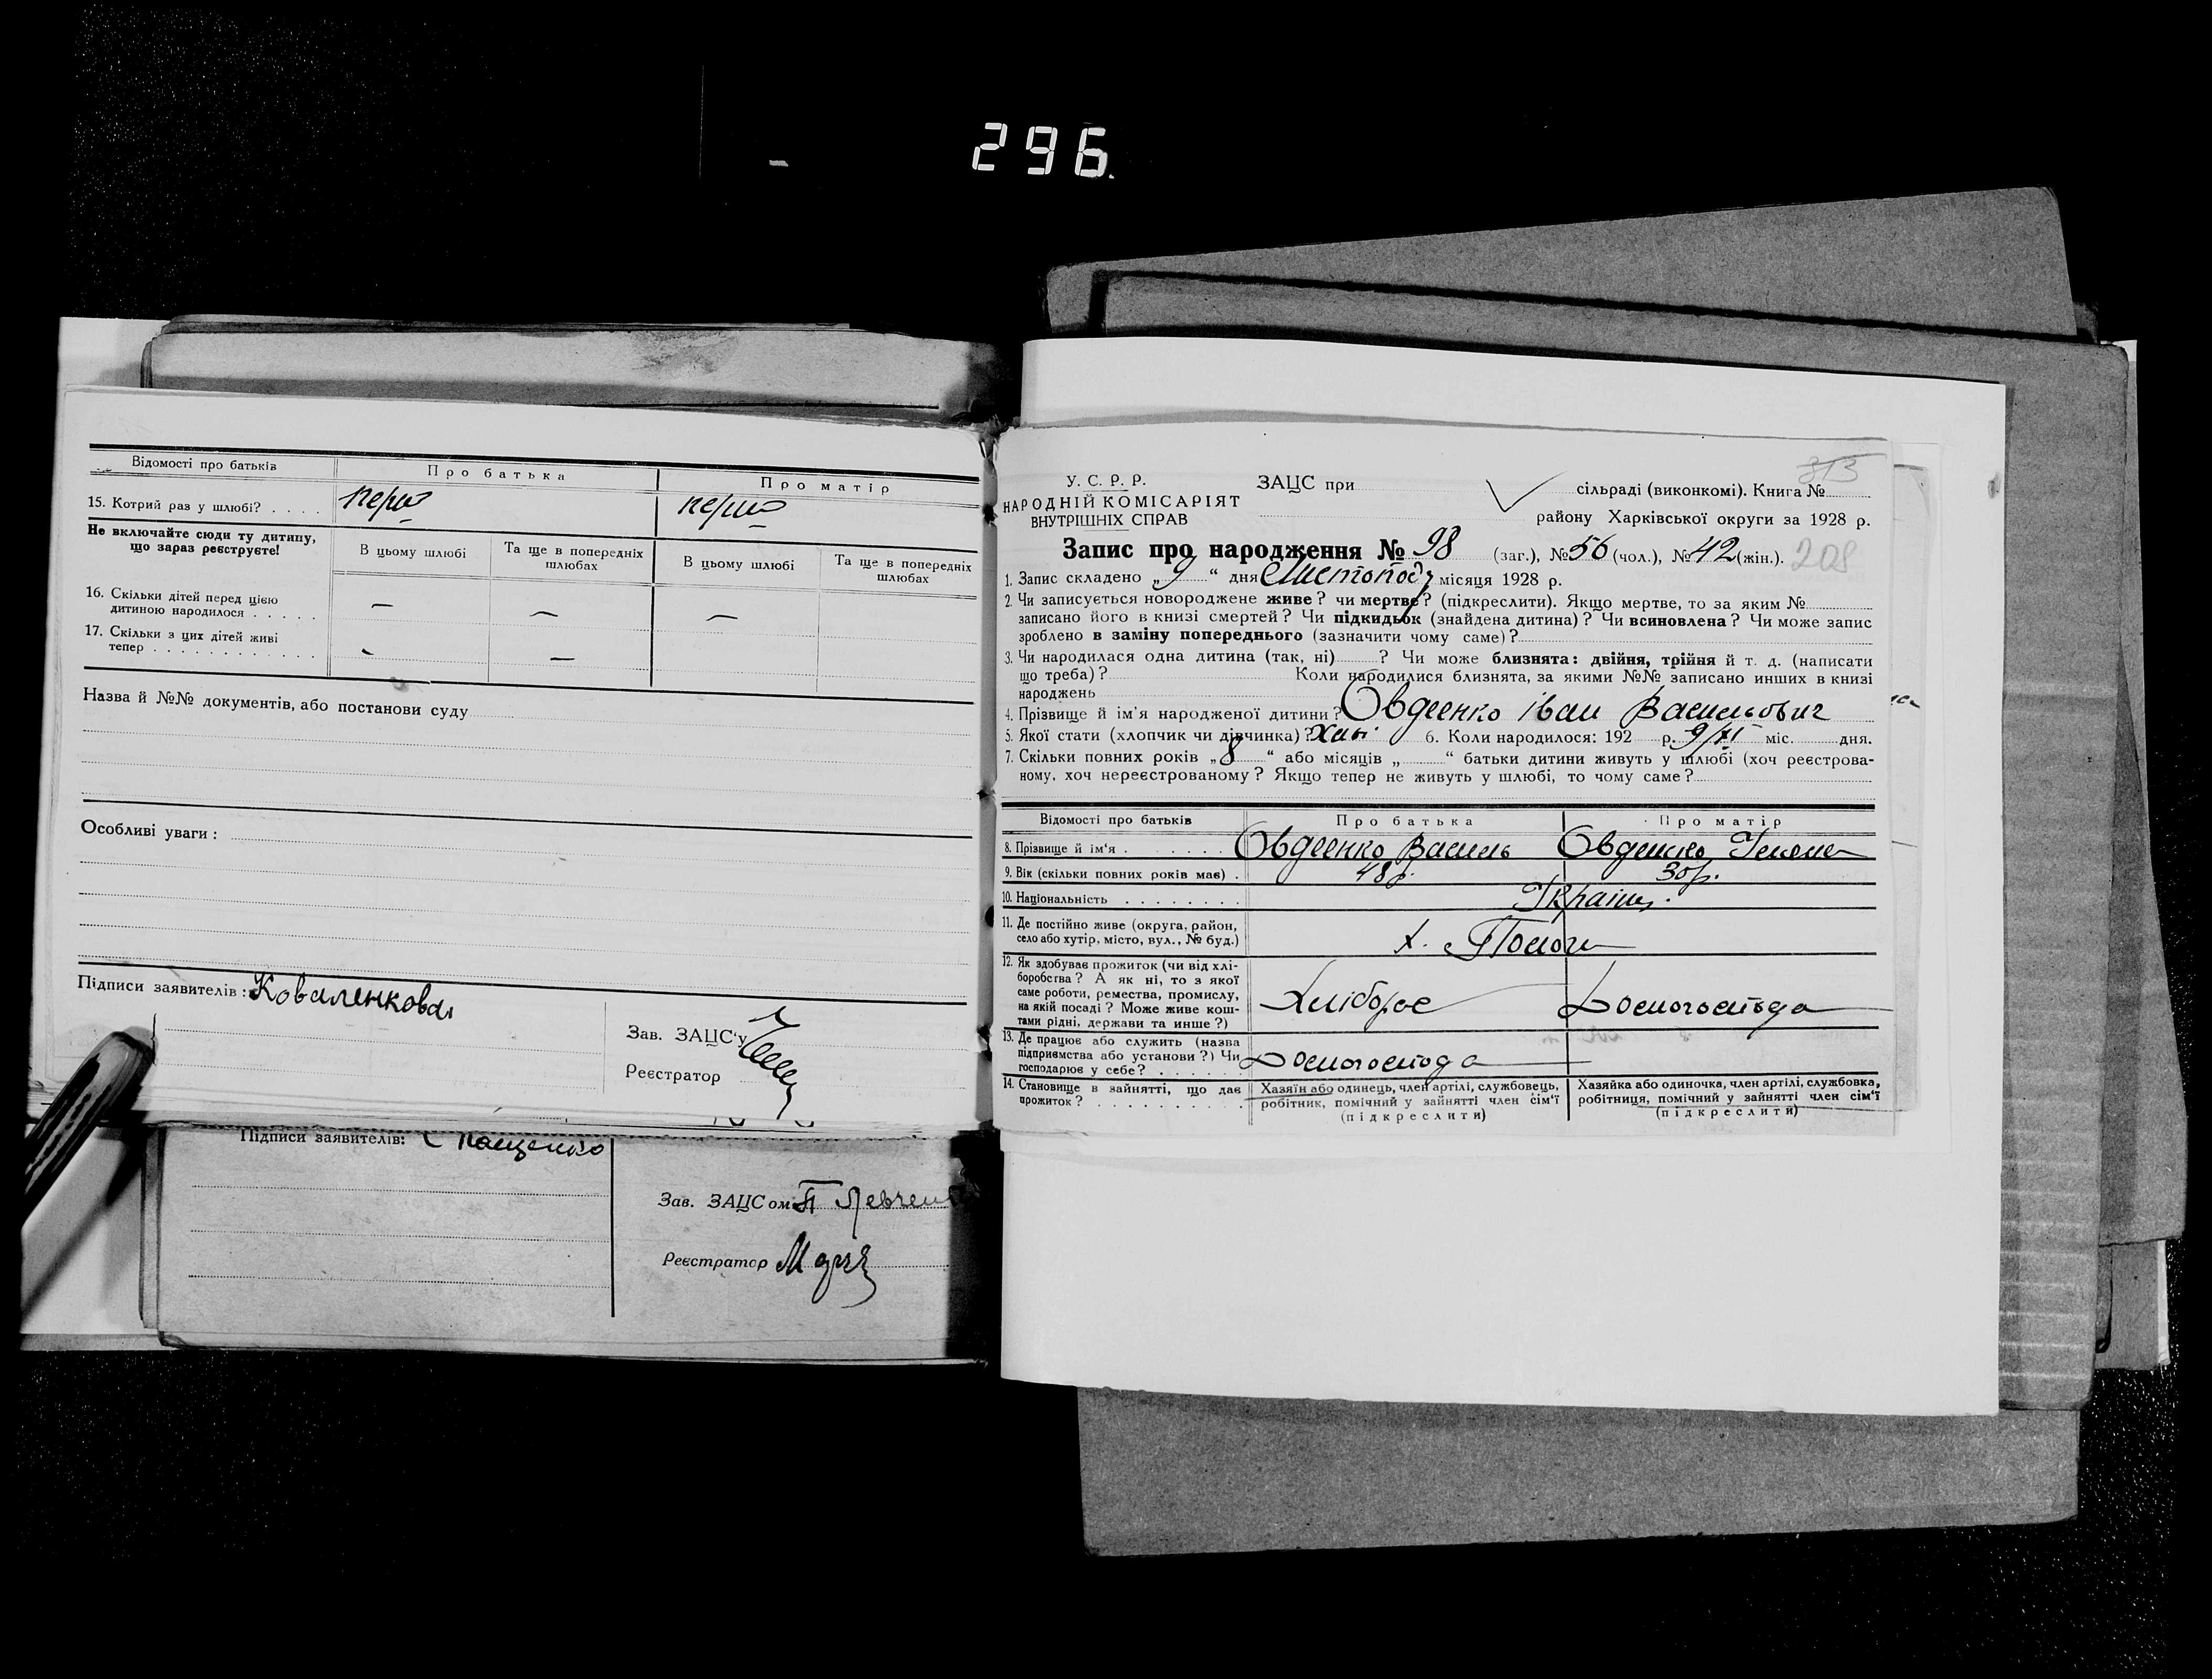 296.
Відомості про батьків Про батька Про матір
15. Котрий раз у шлюбі? . . . . перш перш
Не включайте сюди ту дитину, що зараз реєструєте! В цьому шлюбі Та ще в попередніх шлюбах В цьому шлюбі Та ще в попередніх шлюбах
16. Скільки дітей перед цією
дитиною народилося . . . . . — — —
17. Скільки з цих дітей живі
тепер . . . . . . . . . . . . — —
Назва й №№ документів, або постанови суду
Особливі уваги:
Підписи заявителів: Коваленкова
Зав. ЗАЦС'у
Реєстратор
Підписи заявителів: Пащенко
Зав. ЗАЦСом П Левчен
Реєстратор
313
У. С. Р. Р. ЗАЦС при сільраді (виконкомі). Книга №
НАРОДНІЙ КОМІСАРІЯТ
ВНУТРІШНІХ СПРАВ району Харківської округи за 1928 р.
Запис про народження № 98 (заг.), № 56 (чол.), № 42 (жін.). 208
1. Запис складено „ 9 “ дня Листопод місяця 1928 р.
2. Чи записується новороджене живе? чи мертве? (підкреслити). Якщо мертве, то за яким №
записано його в книзі смертей? Чи підкидьок (знайдена дитина)? Чи всиновлена? Чи може запис
зроблено в заміну попереднього (зазначити чому саме)?
3. Чи народилася одна дитина (так, ні) ? Чи може близнята: двійня, трійня й т. д. (написати
що треба)? Коли народилися близнята, за якими №№ записано инших в книзі
народжень
4. Прізвище й ім'я народженої дитини? Овдеенко Іван Васильович
5. Якої стати (хлопчик чи дівчинка)? 6. Коли народилося: 192 р. 9/XI міс. дня.
7. Скільки повних років „ 8 “ або місяців „ “ батьки дитини живуть у шлюбі (хоч реєстрова-
ному, хоч нереєстрованому? Якщо тепер не живуть у шлюбі, то чому саме?
Відомості про батьків Про батька Про матір
8. Прізвище й ім'я . . . . . . . Овдеенко Василь Овдеенко
9. Вік (скільки повних років має) . 48 р. 30 р.
10. Національність . . . . . . . . Україн.
11. Де постійно живе (округа, район,
село або хутір, місто, вул., № буд.) х.
12. Як здобуває прожиток (чи від хлі-
боробства? А як ні, то з якої
саме роботи, ремества, промислу,
на якій посаді? Може живе кош-
тами рідні, держави та инше?) Хлібороб Домогоспода
13. Де працює або служить (назва
підприємства або установи?) Чи
господарює у себе? . . . . . . Домогоспода
14. Становище в зайнятті, що дає
прожиток? . . . . . . . . . . .
Хазяїн або одинець, член артілі, службовець,
робітник, помічний у зайнятті член сім'ї
(підкреслити)
Хазяйка або одиночка, член артілі, службовка,
робітниця, помічний у зайнятті член сім'ї
(підкреслити)